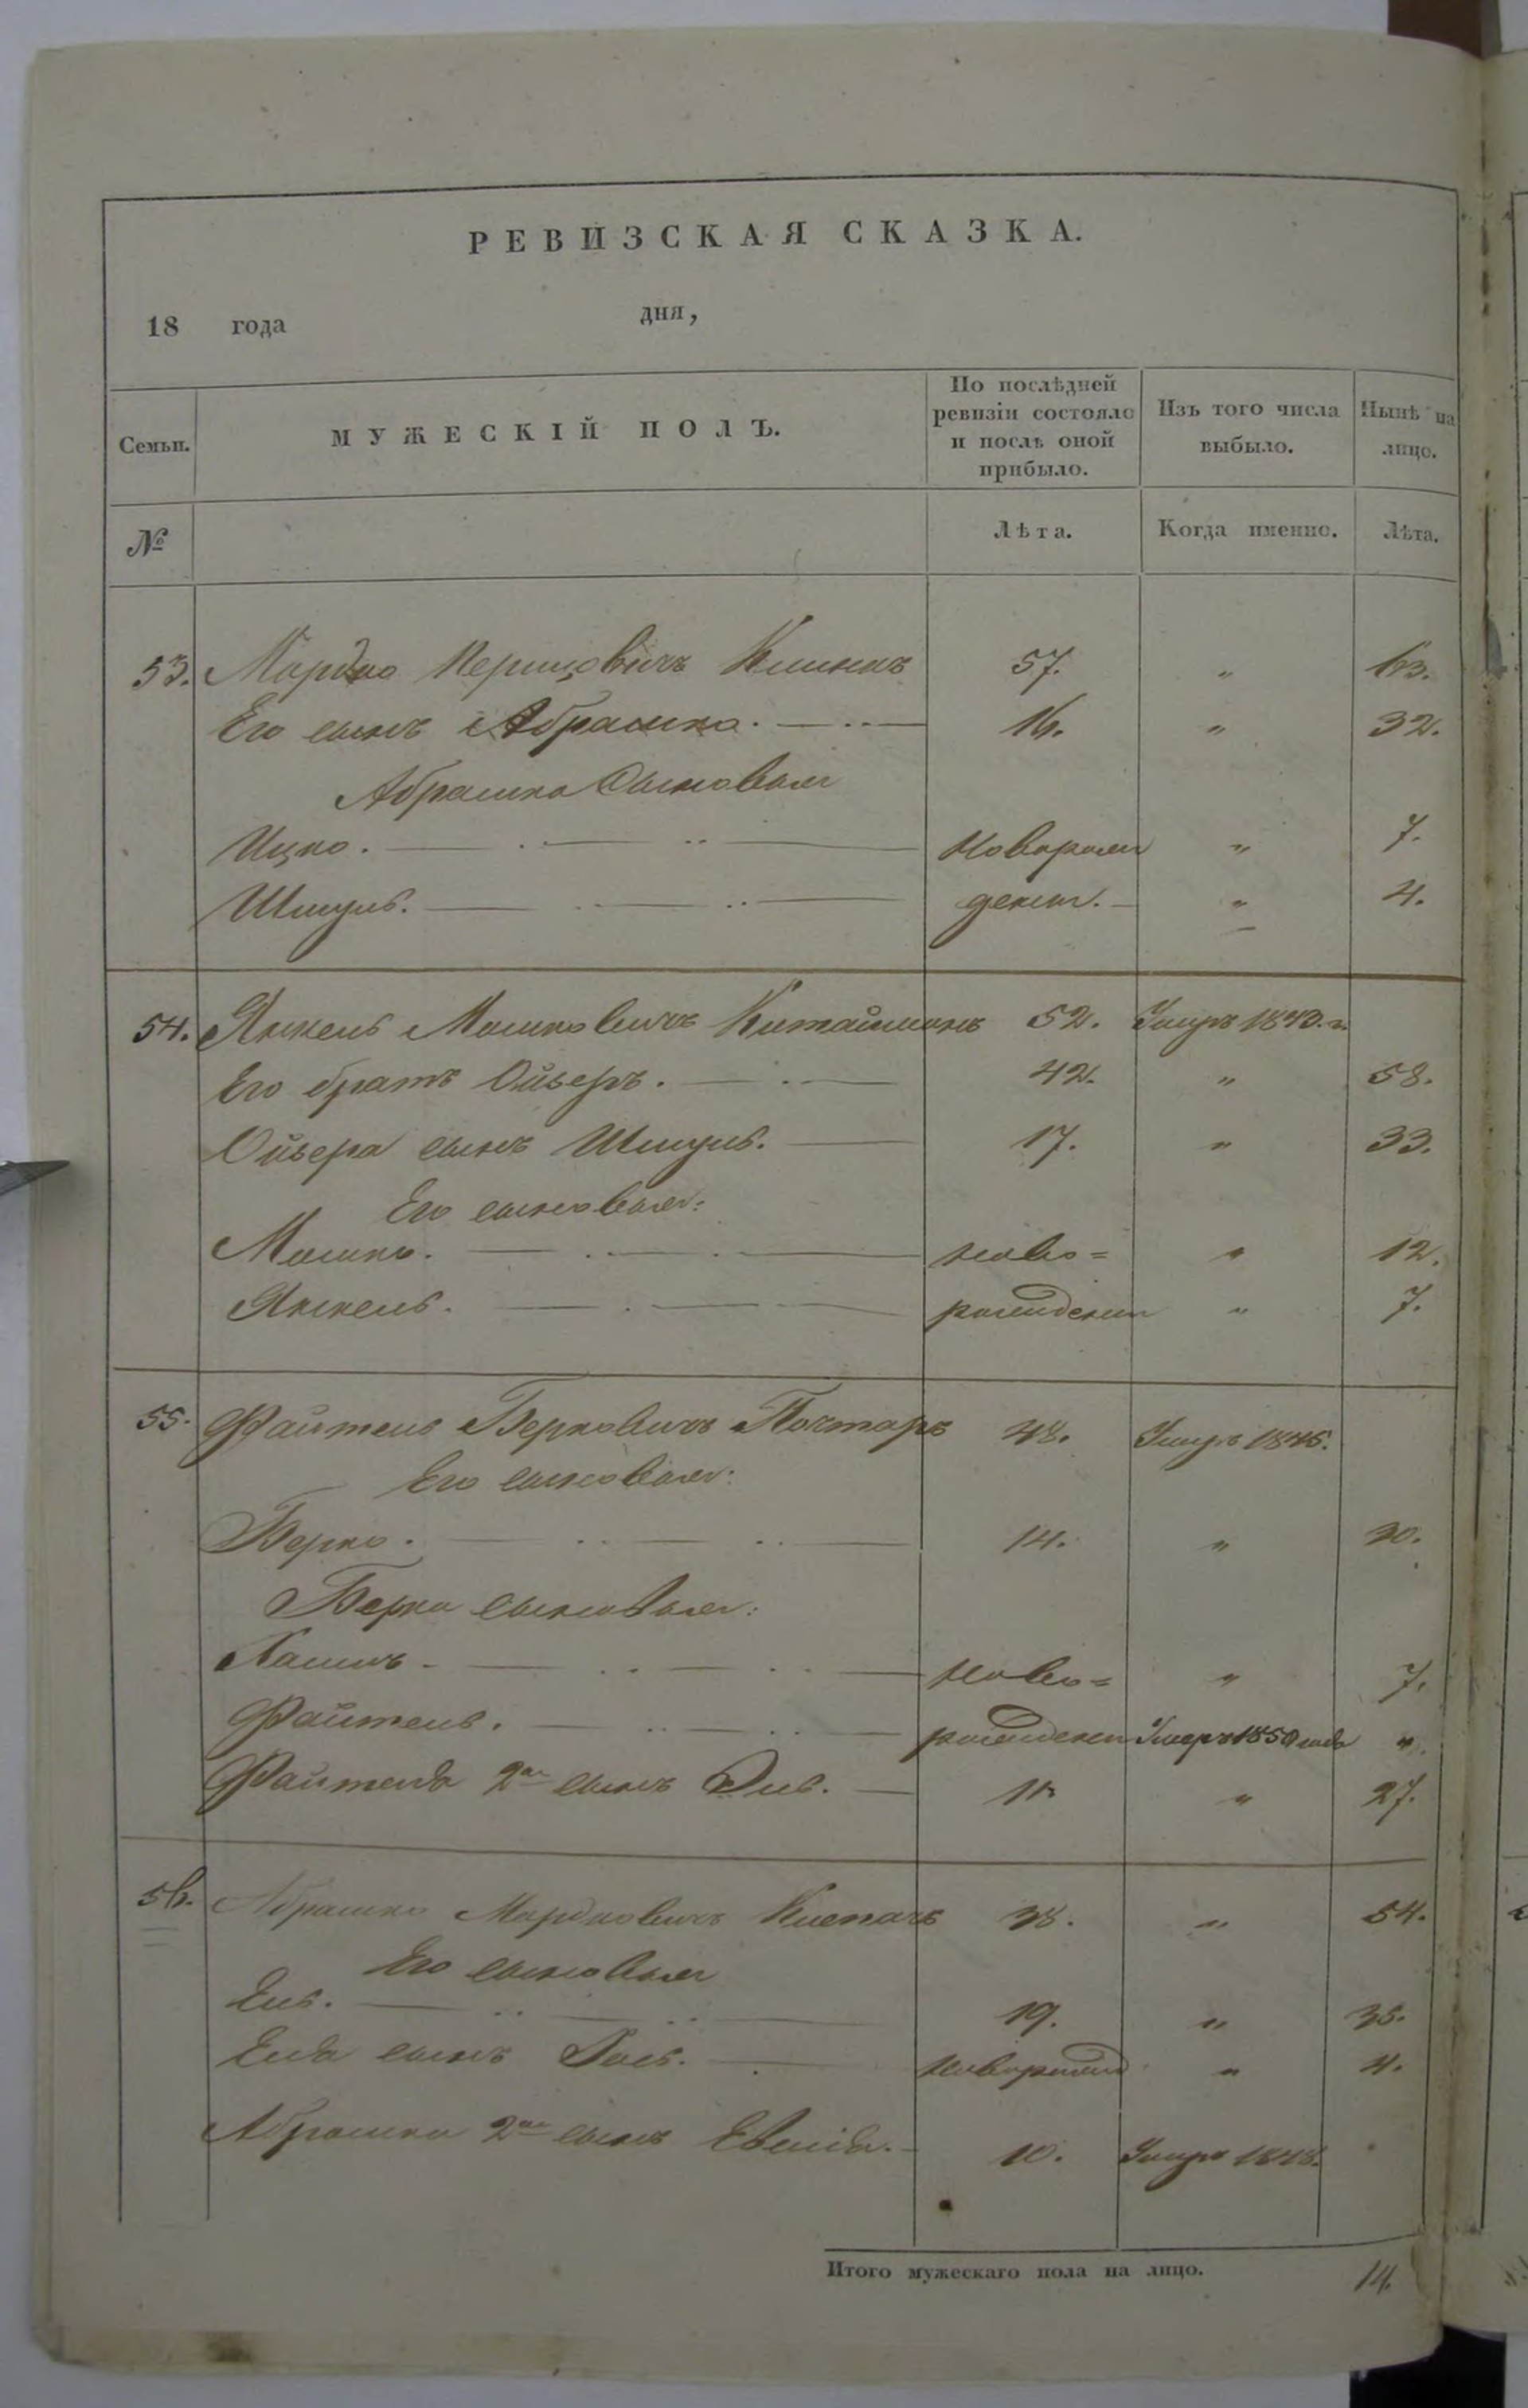 РЕВИЗСКАЯ СКАЗКА.
18 года дня,
Семьи. МУЖЕСКІЙ ПОЛЪ. По послѣдней ревизіи состояло и послѣ оной прибыло. Изъ того числа выбыло. Нынѣ на лицо.
№ Лѣта. Когда именно. Лѣта.
53. Мордко Герцовичъ 57. „
Его сынъ Абрашко. 16. „ 32.
Абрашка Сыновья
Ицко. Новорож „ 7.
Шмуль. денн. „ 4.
54. Янкель Мошковичъ Китайманъ 52. Умеръ 1843. г.
Его братъ Ойзеръ. 42. „ 58.
Ойзера сынъ Шмуль. 17. „ 33.
Его сыновья:
Мошко. ново= „ 12.
Янкель. рожденн „ 7.
55. Файтель Берковичъ Почтаръ 48. Умеръ 1845.
Его сыновья:
Берко. 14. „ 30.
Берка сыновья:
Хаимъ. ново= „ 7.
Файтель. рожденн Умеръ 1850 года „
Файтеля 2й сынъ 11 „ 27.
56. Абрашко Мордковичъ 38. „ 54.
Его сыновья
Ель. 19. „ 35.
Еля сынъ новорожд „ 4.
Абрашка 2й сынъ 10. Умеръ 1848.
Итого мужескаго пола на лицо. 14.